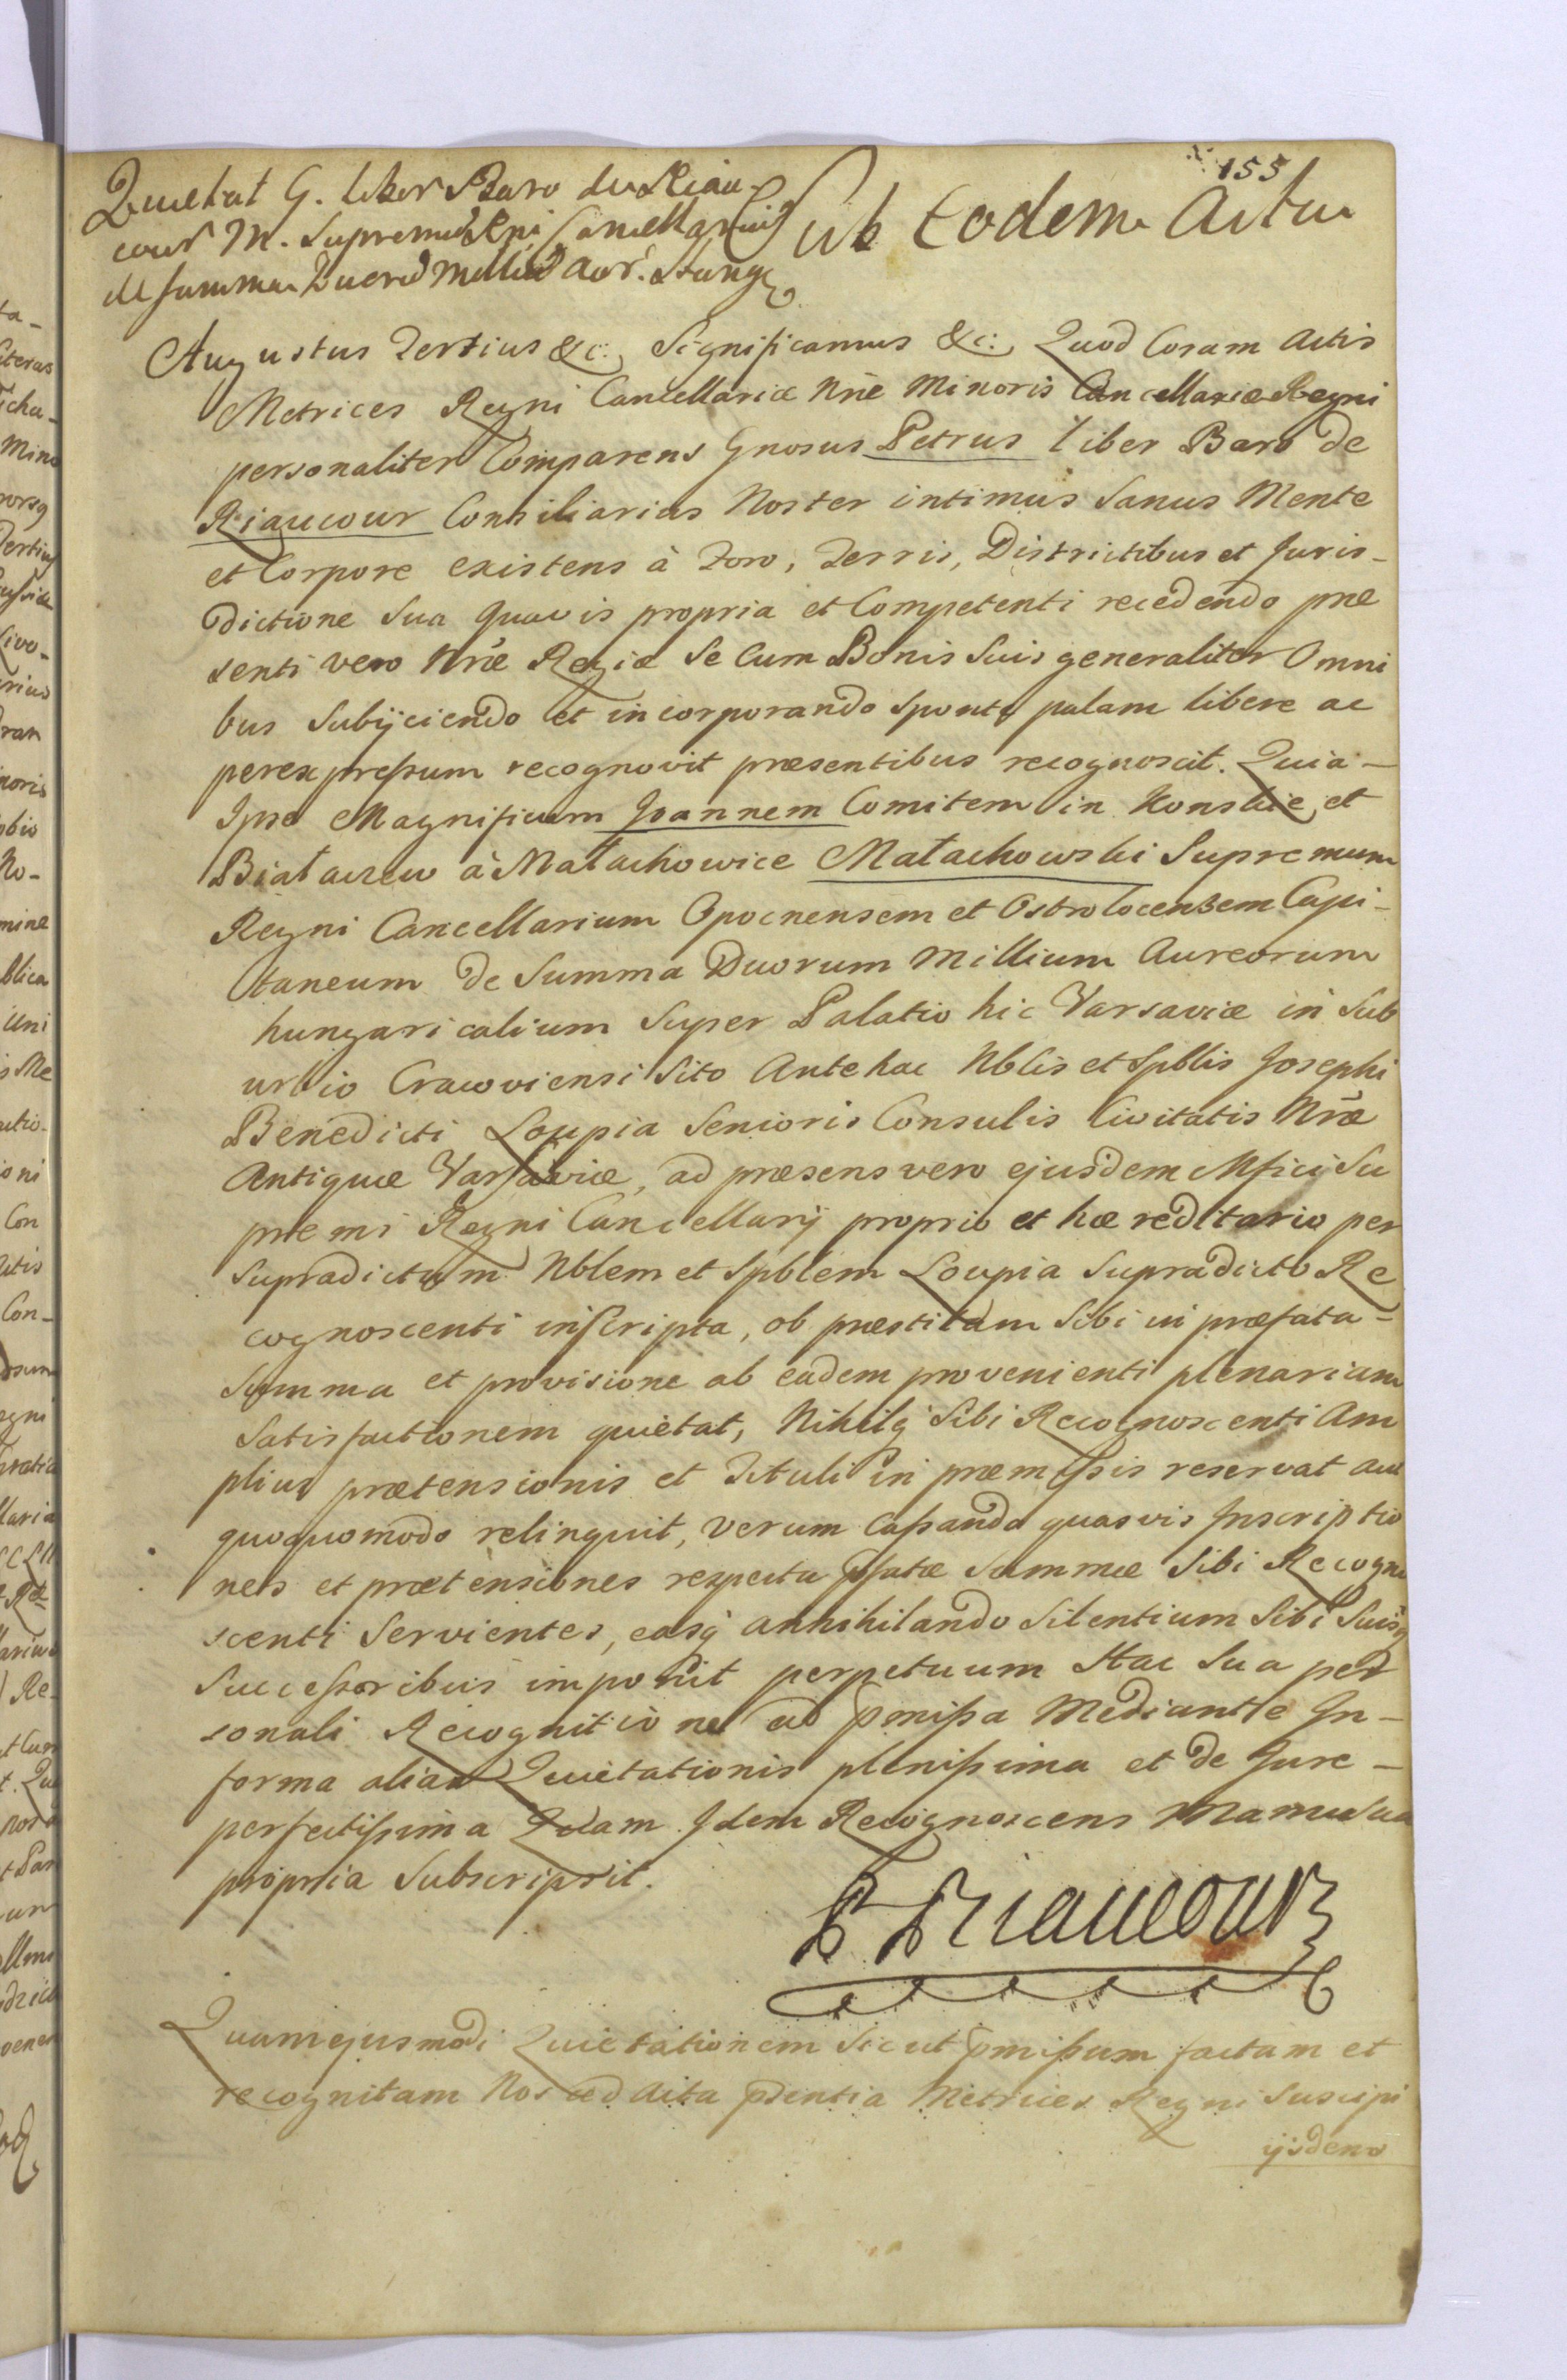 155
Quietat G. liber Baro de Riau-
cour M. Supremum Rni Cancellarium
de summa Duorū Milliū Aur. Hung.
Sub Eodem Actu
Augustus Tertius &c: Significamus &c: Quod Coram Actis
Metrices Regni Cancellariæ Nræ Minoris Cancellariæ Regni
personaliter Comparens Gnosus Petrus liber Baro de
Riaucour Consiliarius Noster intimus Sanus Mente
et Corpore existens à Foro, Terris, Districtibus et Juris-
dictione Sua quavis propria et Competenti recedendo præ
senti vero Nræ Regiæ Se Cum Bonis Suis generaliter Omni
bus Subijciendo et incorporando sponte palam libere ac
per expressum recognovit præsentibus recognoscit. Quia-
Ipse Magnificum Joannem Comitem in Konskie et
Białaczew à Małachowice Małachowski Supremum
Regni Cancellarium Opocnensem et Ostrolocensem Capi-
taneum de Summa Duorum Millium Aureorum
hungaricalium Super Palatio hic Varsaviæ in Sub
urbio Cracoviensi Sito Antehac Nblis et Spblis Josephi
Benedicti Loupia Senioris Consulis Civitatis Nræ
Antiquæ Varsaviæ, ad præsens vero ejusdem Mfici Su
premi Regni Cancellarij proprio et hæreditario per
Supradictum Nblem et Spblem Loupia Supradicto Re
cognoscenti inscripta, ob præstitam Sibi in præfata-
Summa et provisione ab eadem provenienti plenariam
Satisfactionem quietat, Nihilq Sibi Recognoscenti Am
plius prætensionis et Tituli in præmissis reservat aut
quoquomodo relinquit, verum Cassando quasvis Inscriptio
nes et prætensiones respectu pfatæ Summæ Sibi Recogno
scenti Servientes, easq annihilando Silentium Sibi Suisq
Successoribus imponit perpetuum Hac Sua per
sonali Recognitione ad pmissa Mediante In-
forma alias Quietationis plenissima et de Jure-
perfectissima Idem Recognoscens Manu Sua
propria Subscripsit.
P. Riaucour
Quam ejusmodi Quietationem Sicut pmissum factam et
recognitam Nos ad Acta pdentia Metrices Regni Suscipi
ijsdem